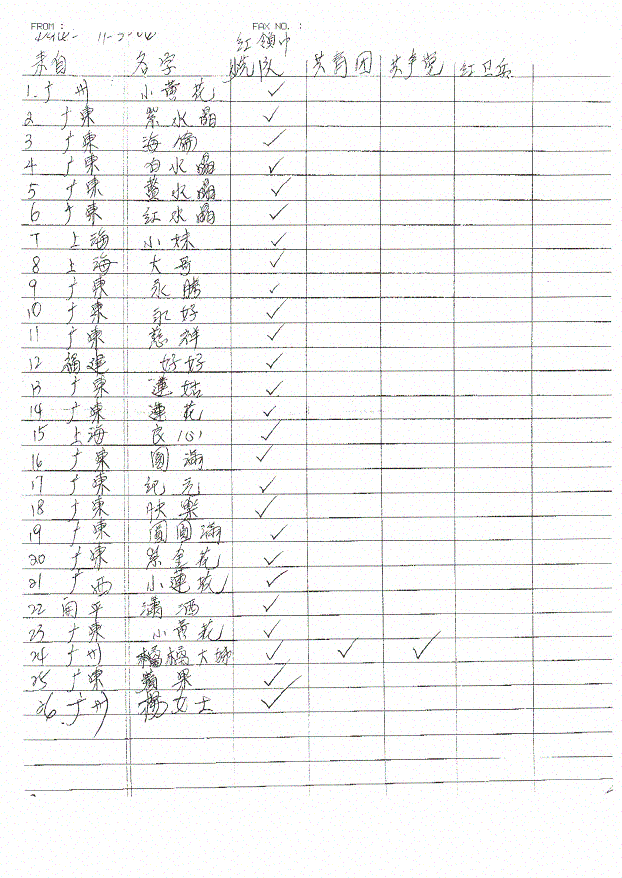 FROM : FAX NO. :
红领巾
来自 名字 先队 共青团 共产党 红卫兵
1. 广州 小黄花 ✓
2 广東 紫水晶 ✓
3 广東 海 ✓
4 广東 白水晶 ✓
5 广東 蓝水晶 ✓
6 广東 红水晶 ✓
7 上海 小妹 ✓
8 上海 大哥 ✓
9 广東 永勝 ✓
10 广東 永好 ✓
11 广東 慈祥 ✓
12 福建 好好 ✓
13 广東 蓮姑 ✓
14 广東 蓮花 ✓
15 上海 良心 ✓
16 广東 圓满 ✓
17 广東 纪元 ✓
18 广東 快樂 ✓
19 广東 圓圓满 ✓
20 广東 紫金花 ✓
21 广西 小蓮花 ✓
22 開平 潇洒 ✓
23 广東 小黄花 ✓
24 广州 橘橘大姊 ✓ ✓ ✓
25 广東 蘋果 ✓
26. 广州 杨女士 ✓